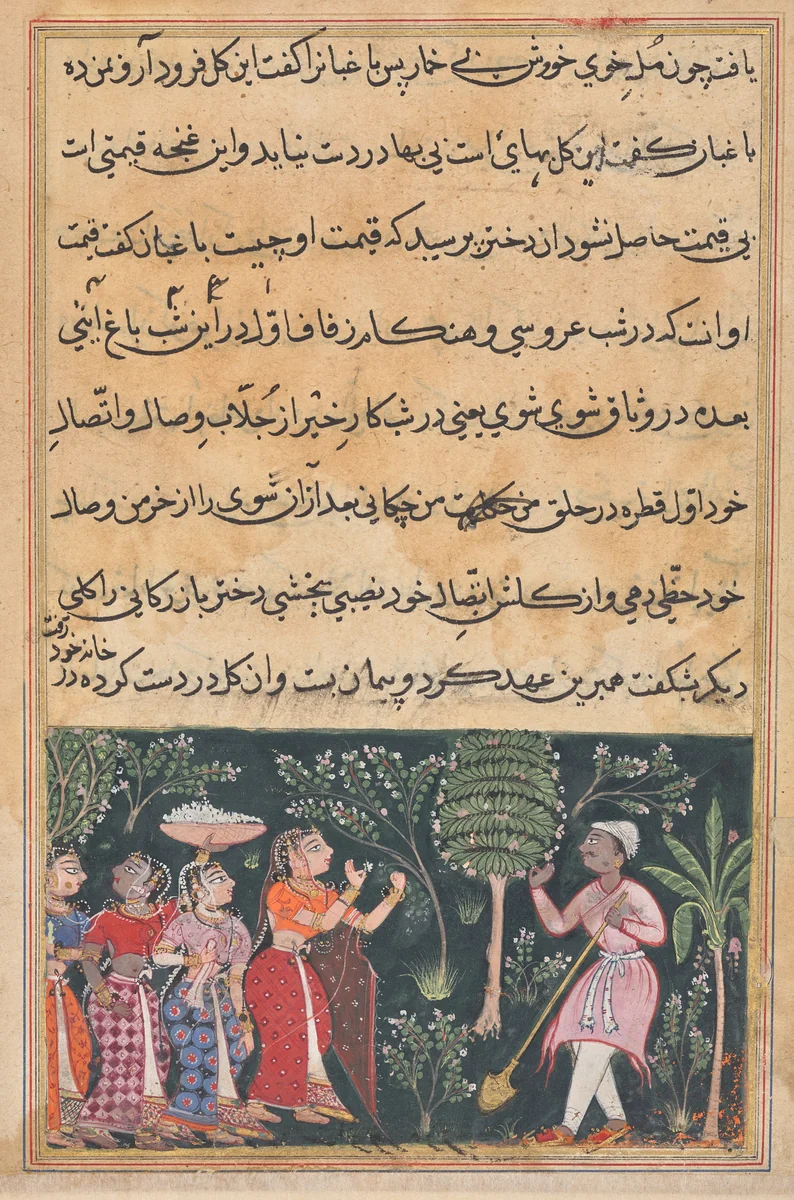 یافت چون مُلِ خوي خووش بي خمار پس باغبانرا گفت این کل فرود آر و بمن ده
باغبان گفت این کل بهایٔ است بی بها در دست نیاید و این غنچه قیمتي است
بي قیمت حاصل نشود ان دختر پرسید که قیمت او چیست باغبان گفت قیمت
او انست که در شب عروسي و هنکام زفاف اوّل در این شب باغ آئي
بعده در وثاق شوي شوي یعني در شب کارِ خیر از جُلّابِ وصال و اتّصالِ
خود اوّل قطره در حلق من چکاني بعد ازان شوی را از خرمن وصال
خود حظّي دهي و از کلش اتّصال خود نصیبي بخشي دختر بازرکاني را کلي
دیکر بشکفت همبرین عهد کرد و پیمان بست و ان کل در دست کرده در
خانه خود
رفت